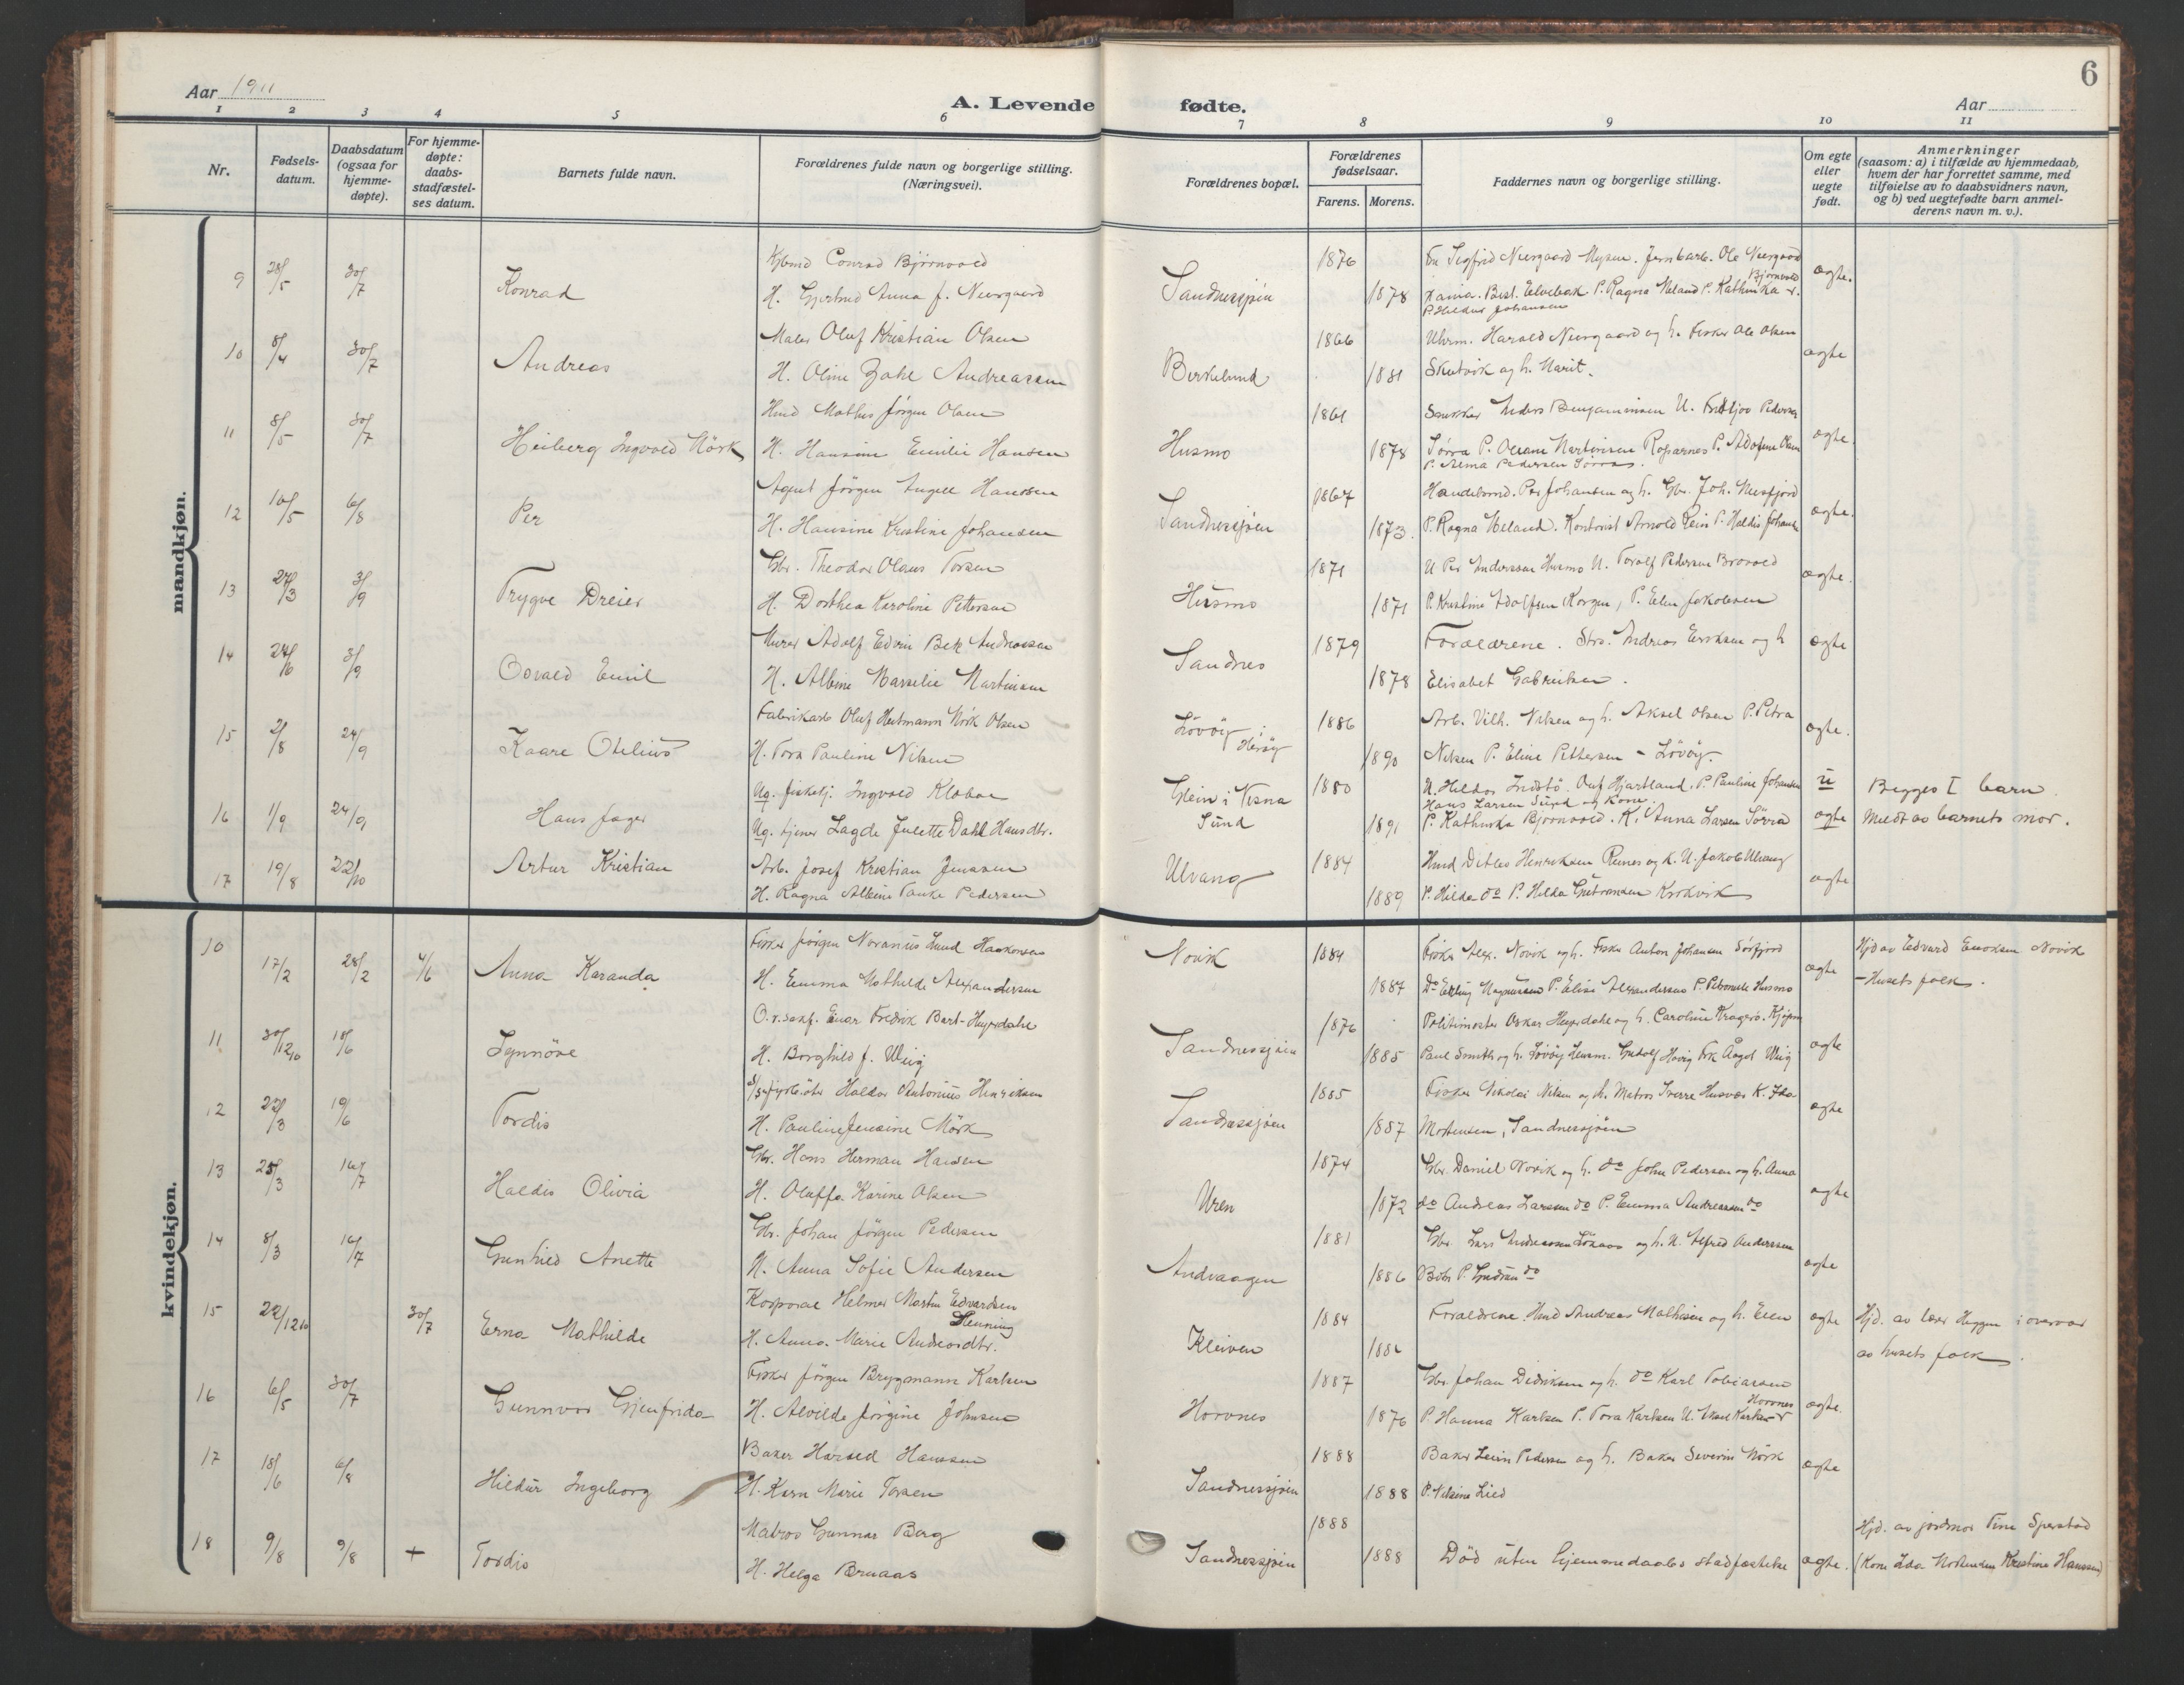 6
Aar 1911
A. Levende fødte.
Aar
1 2 3 4 5 6 7 8 9 10 11
Nr.
Fødsels-
datum.
Daabsdatum
(ogsaa for
hjemme-
døpte).
For hjemme-
døpte:
daabs-
stadfæstel-
ses datum.
Barnets fulde navn.
Forældrenes fulde navn og borgerlige stilling.
(Næringsvei).
Forældrenes bopæl.
Forældrenes
fødselsaar.
Farens. Morens.
Faddernes navn og borgerlige stilling.
Om egte
eller
uegte
født.
Anmerkninger
(saasom: a) i tilfælde av hjemmedaab,
hvem der har forrettet samme, med
tilføielse av to daabsvidners navn,
og b) ved uegtefødte barn anmel-
derens navn m. v.).
mandkjøn.
9 28/5 30/7 Konrad
Conrad Bjørnvold
H. Gjertrud Anna f. Neergaard
Sandnessjøen 1876 1878
Ole Neergaard
Bjørnvold
P. Ragna Meland P. Kathinka
Johansen
ægte.
10 8/4 30/7 Andreas
Maler Oluf Kristian Olsen
H. Oline Zahl Andreassen
Birkelund 1866 1881
Uhrm. Harald Neergaard og h. Fisker Ole Olsen
Skutvik og h. Marit.
ægte
11 8/5 30/7 Heiberg Ingvold Mörk
Hmd Mathis Jörgen Olsen
H. Hansine Emilie Hansen
Husmo 1861 1878
Snekker Anders Benjaminsen U. Fridtjov Pedersen
Sörra P. Oleane Martinsen P. Adolfine Olsen
P. Alma Pedersen Sörra.
ægte.
12 10/5 6/8 Per
Agent Jörgen Angell Hanssen
H. Hansine Kristine Johansen
Sandnessjøen 1867 1873.
Handelsmd. Per Johansen og h. Gbr. Joh. Nesfjord
P. Ragna Meland. Kontorist Arnold Rein P. Haldis Johansen
ægte.
13 27/3 3/9 Trygve Dreier
Gbr. Theodor Olaus Torsen
H. Dorthea Karoline Pettersen
Husmo 1871 1871
U Per Anderssen Husmo U. Toralf Pedersen Brovold
P. Kristine Adolfsen Korgen, P. Elen Jakobsen
ægte.
14 24/6 3/9 Osvald Emil
Murer Adolf Edvin Bek Andreassen
H. Albine Marselie Martinsen
Sandnes 1879 1878
Forældrene. Strs. Andreas Eriksen og h
Elisabet Gabrielsen.
ægte
15 2/8 24/9 Kaare Otelius
Fabrikarb Oluf Hertmann Mörk Olsen
H. Tora Pauline Nilsen
Lövöy i Heröy 1886 1890
Arb. Vilh. Nilsen og h. Aksel Olsen P. Petra
Nilsen P. Eline Pettersen - Lövöy.
ægte.
16 1/9 24/9 Hans Jager
Ug. fiskerj. Ingvald Klæboe
Ug. tjener Lagde Julette Dahl Hansdtr.
Glein i Nesna
Sund
1880 1891
U. Heldor Indstö. Oluf Hjartland. P. Pauline Johansen
Hans Larsen Sund og kone.
P. Kathinka Bjørnvold. K. Anna Larsen Sörra
u
ægte
Begges I barn.
Meldt av barnets mor.
17 19/8 22/10 Artur Kristian
Arb. Josef Kristian Jenssen
H. Ragna Albine Tanke Pedersen
Ulvang 1884 1889
Hmd Ditlev Henriksen Reines og K. U. Jakob Ulvang
P. Hilda do P. Helda Krokvik
ægte
kvindekjøn.
10 17/2 28/2 4/6 Anna Karanda
Fisker Jörgen Noranius Lund Haakonsen
H. Emma Mathilde Alexandersen
Novik 1884 1887
Fisker Alex. Novik og h. Fisker Anton Johansen Sörfjord
Do Erling Magnussen P. Elise Alexandersen P. Petronele Husmo
ægte
Hjd av Edvard Enoksen Novik
- Husets folk.
11 30/12 10 18/6 Synnöve
O.r.sakf. Einar Fredrik Bart-Heyerdahl
H. Borghild f. Wiig
Sandnessjøen 1876 1885
Politimester Oskar Heyerdahl og h. Caroline Kragerö. Kjøpm
Paul Smith og h. Lövöy Lensm. Gudolf Hovig Frk Ågot Wiig
ægte
12 22/3 19/6 Tordis
Haldor Antonius Henriksen
H. Pauline Jensine Mörk
Sandnessjøen 1885 1887
Fisker Nikolai Nilsen og h. Matros Sverre Husvær K. Ida
Mortensen, Sandnessjøen
ægte
13 25/3 16/7 Haldis Olivia
Gbr. Hans Herman Hansen
H. Oluffa Karine Olsen
Uren 1874 1872
Gbr. Daniel Novik og h. do John Pedersen og h. Anna
do Andreas Larssen do P. Emma Andreassen do
ægte
14 8/3 16/7 Gunhild Anette
Gbr. Johan Jörgen Pedersen
H. Anna Sofie Andersen
Andvaagen 1881 1886
Gbr. Lars Andreassen Lökaas og h. U. Alfred Anderssen
Botn P. Gudrun do
ægte
15 22/12 10 30/7 Erna Mathilde
Korporal Helmer Martin Edvardsen
Slenning
H. Anna Marie Andreasdtr.
Kleiven 1884 1882
Forældrene. Hmd Andreas Mathisen og h. Elen
ægte
Hjd. av lærer Heggen i overvær
av husets folk.
16 6/5 30/7 Gunnvor Gjenfrida
Fisker Jörgen Brygmann Karlsen
H. Alvilde Jörgine Johnsen
Horvnes 1887 1876
Gbr. Johan Didriksen og h. do Karl Tobiassen
Horvnes
P. Hanna Karlsen P. Tora Karlsen U.
ægte.
17 18/6 6/8 Hildur Ingeborg
Baker Harald Hanssen
H. Karn Marie Torsen
Sandnessjøen 1888 1888
Baker Leien Pedersen og h. Baker Severin Mörk
P. Nilsine Lied
ægte
18 9/8 9/8 + Tordis
Matros Gunnar Berg
H. Helga Bruaas
Sandnessjøen 1888 1888
Död uten hjemmedaabs stadfæstelse
ægte.
Hjd. av jordmor Tina Sperstad
(Kone Ida Mortensen Kristine Hanssen)